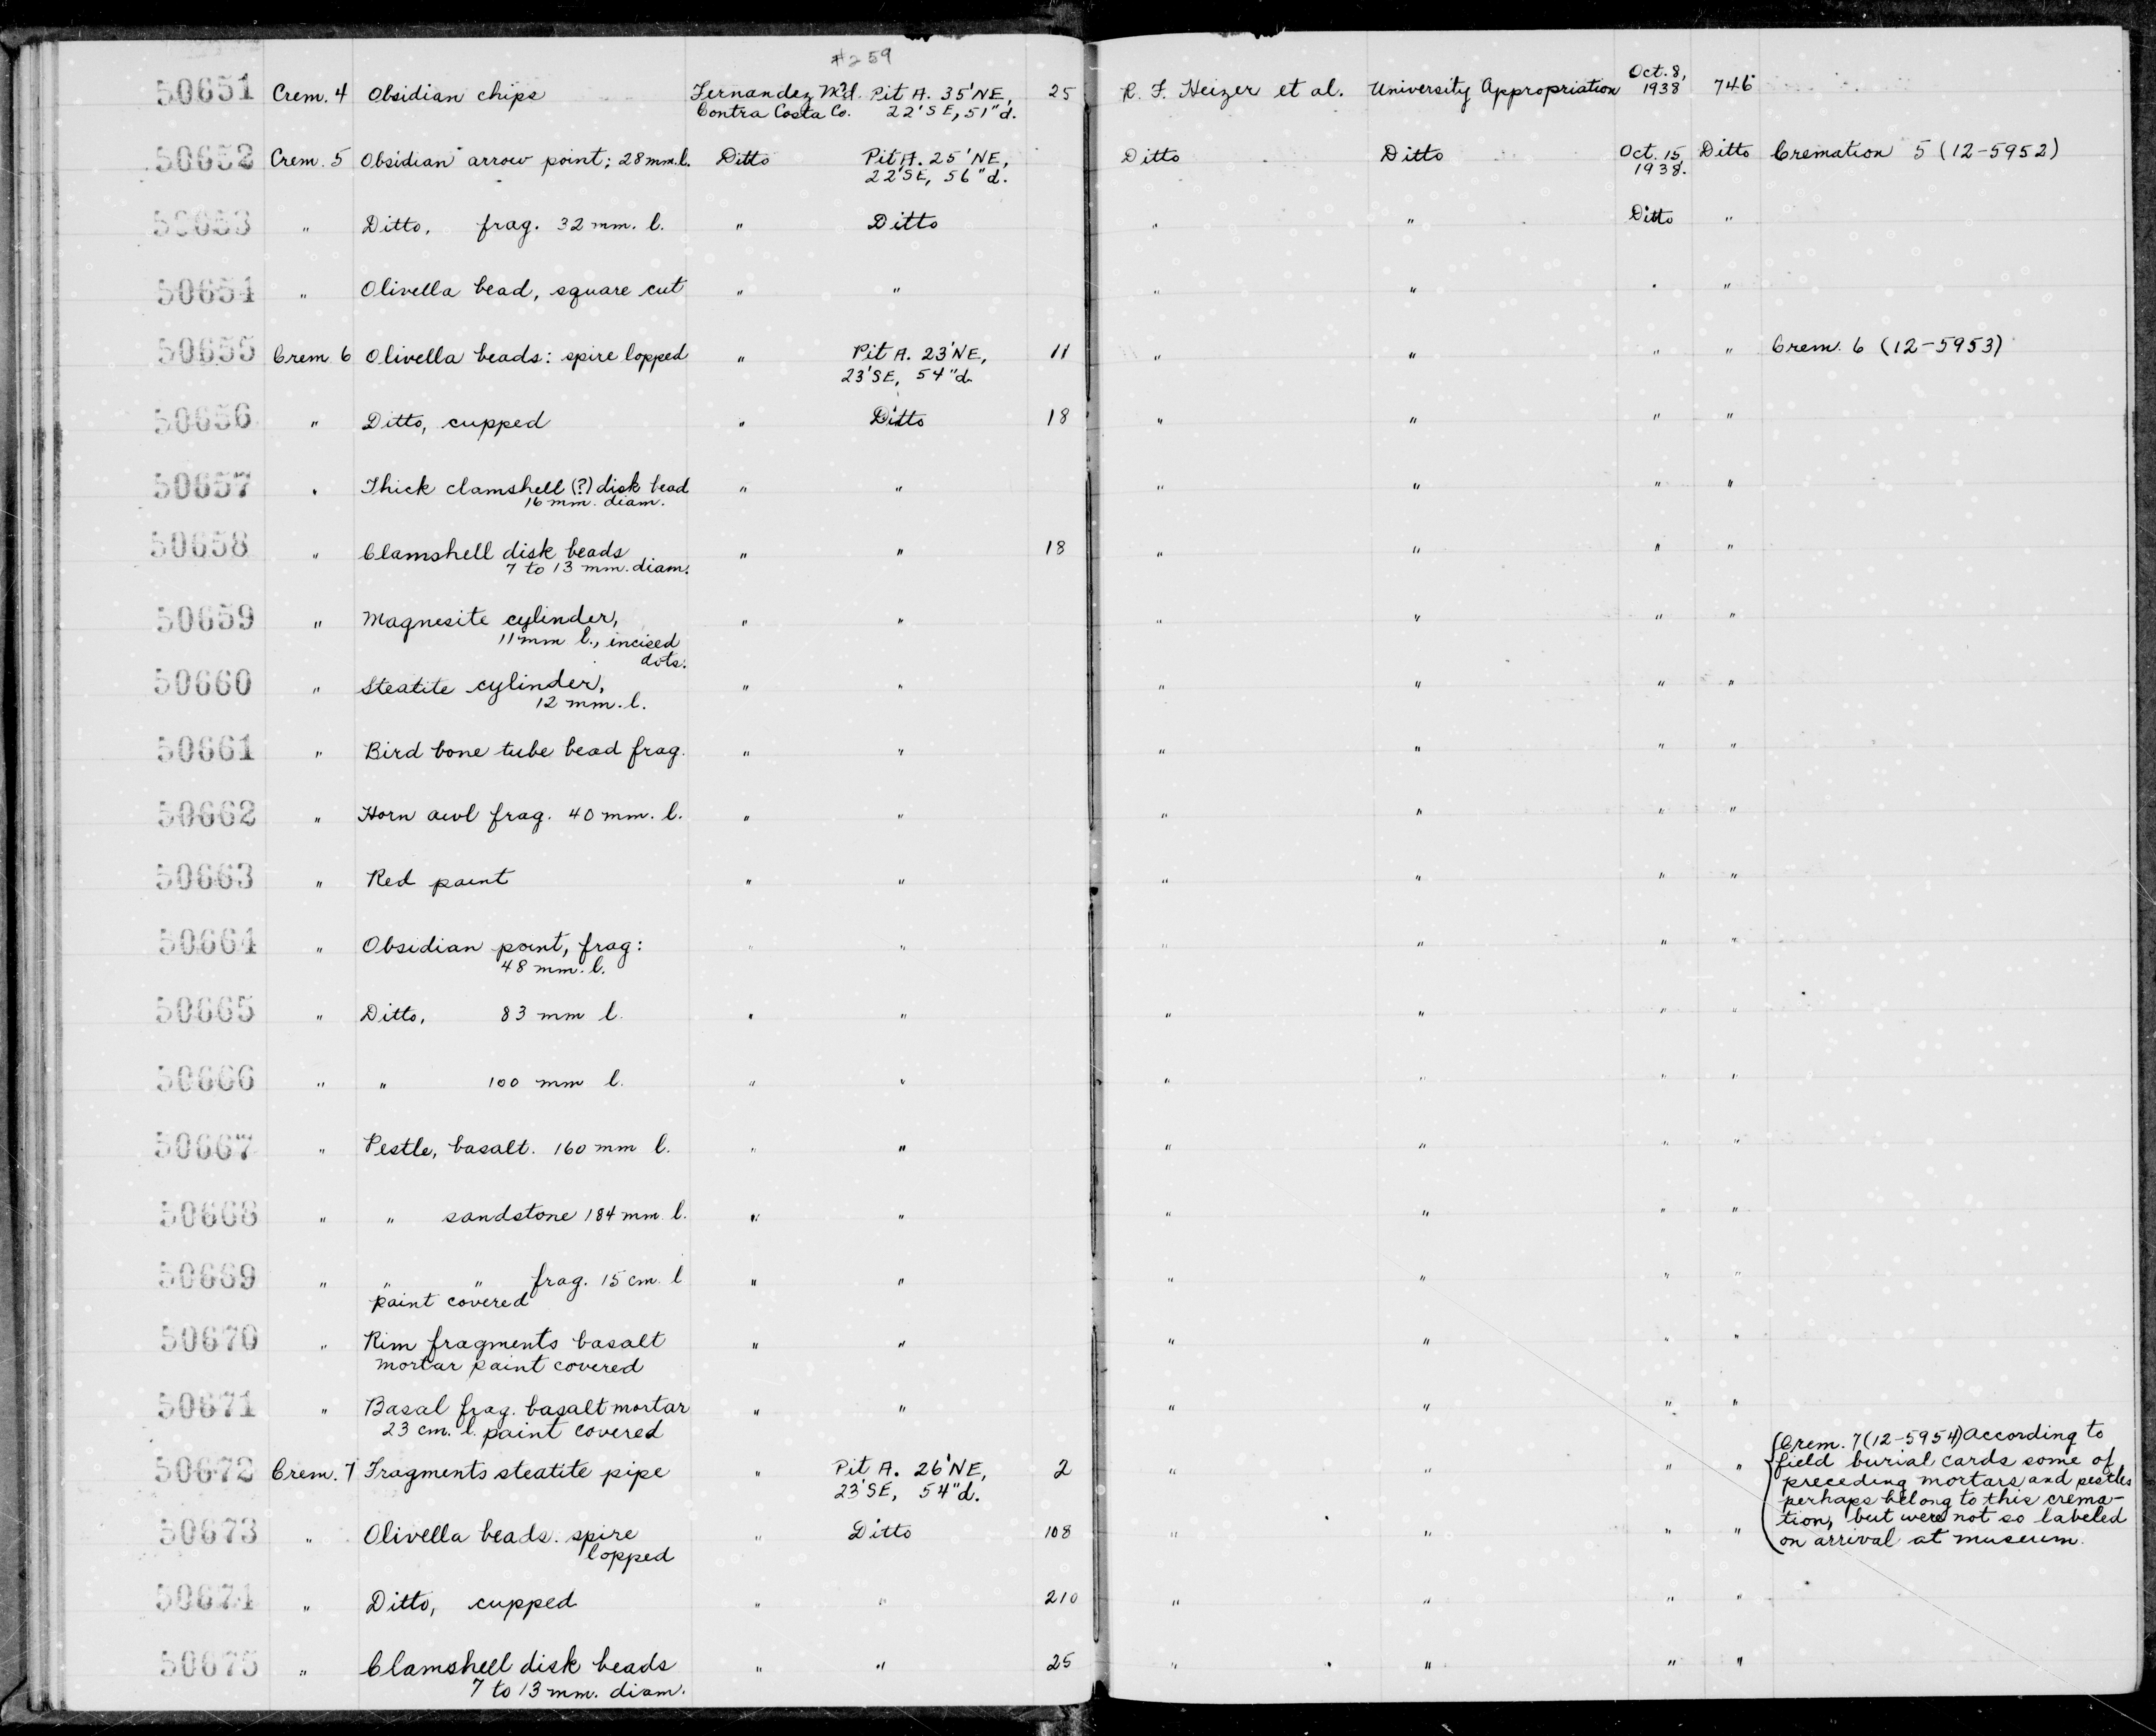 #259
50651 Crem. 4 Obsidian chips Fernandez M'd. Pit A. 35'NE, 25 R. F. Heizer et al. University Appropriation Oct. 8, 746
Contra Costa Co. 22'SE, 51"d. 1938
50652 Crem. 5 Obsidian arrow point; 28mm.l. Ditto Pit A. 25'NE, Ditto Ditto Oct. 15 Ditto Cremation 5 (12-5952)
22'SE, 56"d. 1938.
50653 " Ditto, frag. 32 mm. l. " Ditto " " Ditto "
50654 " Olivella bead, square cut " " " " " "
50655 Crem. 6 Olivella beads: spire lopped " Pit A. 23'NE, 11 " " " " Crem. 6 (12-5953)
23'SE, 54"d.
50656 " Ditto, cupped " Ditto 18 " " " "
50657 " Thick clamshell (?) disk bead " " " " " "
16 mm. diam.
50658 " Clamshell disk beads " " 18 " " " "
7 to 13 mm. diam.
50659 " Magnesite cylinder, " " " " " "
11 mm l., incised
dots.
50660 " Steatite cylinder, " " " " " "
12 mm. l.
50661 " Bird bone tube bead frag. " " " " " "
50662 " Horn awl frag. 40 mm. l. " " " " " "
50663 " Red paint " " " " " "
50664 " Obsidian point, frag: " " " " " "
48 mm. l.
50665 " Ditto, 83 mm l. " " " " " "
50666 " " 100 mm l. " " " " " "
50667 " Pestle, basalt. 160 mm l. " " " " " "
50668 " " sandstone 184 mm. l. " " " " " "
50669 " " " frag. 15 cm. l " " " " " "
paint covered
50670 " Rim fragments basalt " " " " " "
mortar paint covered
50671 " Basal frag. basalt mortar " " " " " "
23 cm. l. paint covered
50672 Crem. 7 Fragments steatite pipe " Pit A. 26'NE, 2 " " " "
23'SE, 54"d.
Crem. 7 (12-5954) According to
field burial cards some of
preceding mortars and pestles
perhaps belong to this crema-
tion, but were not so labeled
on arrival at museum.
50673 " Olivella beads: spire " Ditto 108 " " " "
lopped
50674 " Ditto, cupped " " 210 " " " "
50675 " Clamshell disk beads " " 25 " " " "
7 to 13 mm. diam.